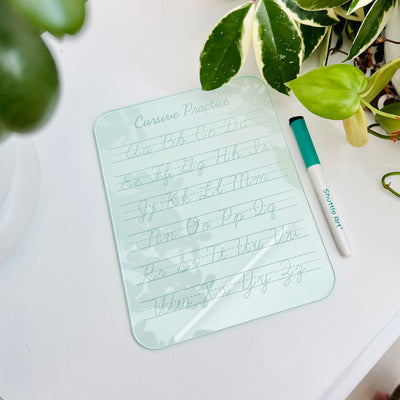 Cursive Practice
Aa Bb Cc Dd
Ee Ff Gg Hh Ii
Jj Kk Ll Mm
Nn Oo Pp Qq
Rr Ss Tt Uu Vv
Ww Xx Yy Zz
Shuttle Art